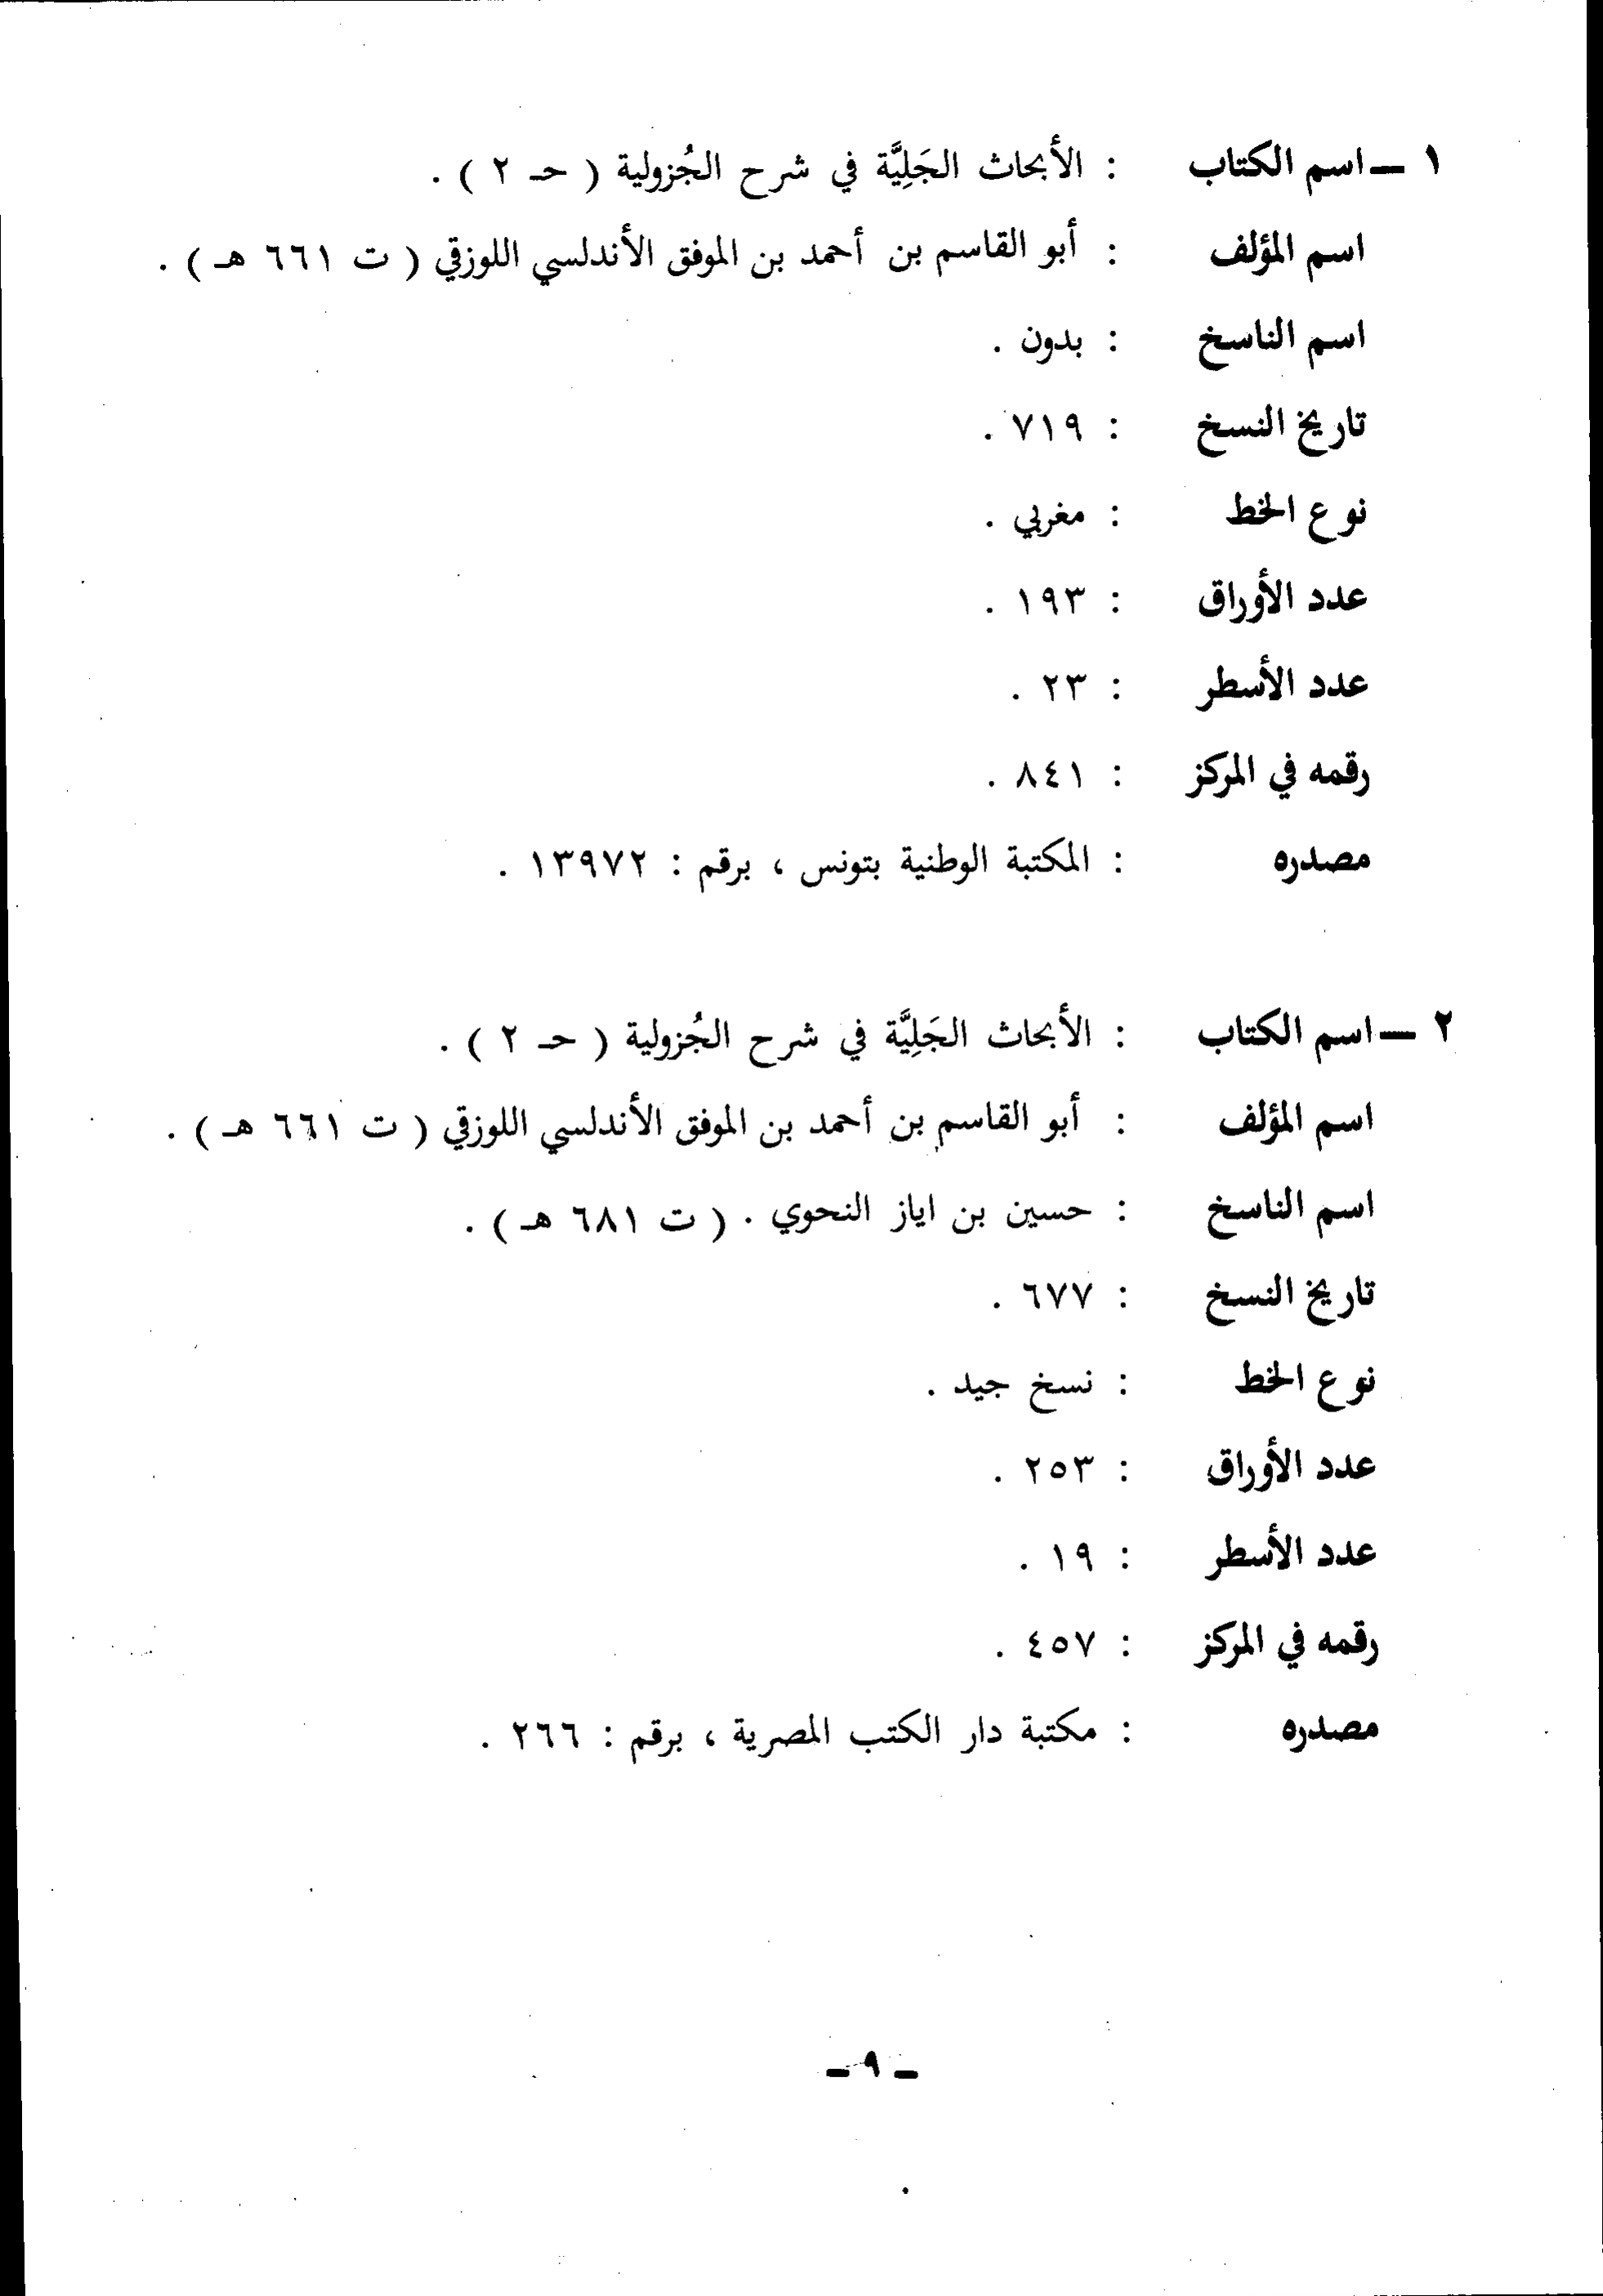 ١ ــ اسم الكتاب : الأبحاث الجَلِيَّة في شرح الجُزولية ( حـ ٢ ) .
اسم المؤلف : أبو القاسم بن أحمد بن الموفق الأندلسي اللوزقي ( ت ٦٦١ هـ ) .
اسم الناسخ : بدون .
تاريخ النسخ : ٧١٩ .
نوع الخط : مغربي .
عدد الأوراق : ١٩٣ .
عدد الأسطر : ٢٣ .
رقمه في المركز : ٨٤١ .
مصدره : المكتبة الوطنية بتونس ، برقم : ١٣٩٧٢ .
٢ ــ اسم الكتاب : الأبحاث الجَلِيَّة في شرح الجُزولية ( حـ ٢ ) .
اسم المؤلف : أبو القاسم بن أحمد بن الموفق الأندلسي اللوزقي ( ت ٦٦١ هـ ) .
اسم الناسخ : حسين بن اياز النحوي . ( ت ٦٨١ هـ ) .
تاريخ النسخ : ٦٧٧ .
نوع الخط : نسخ جيد .
عدد الأوراق : ٢٥٣ .
عدد الأسطر : ١٩ .
رقمه في المركز : ٤٥٧ .
مصدره : مكتبة دار الكتب المصرية ، برقم : ٢٦٦ .
ــ ٩ ــ